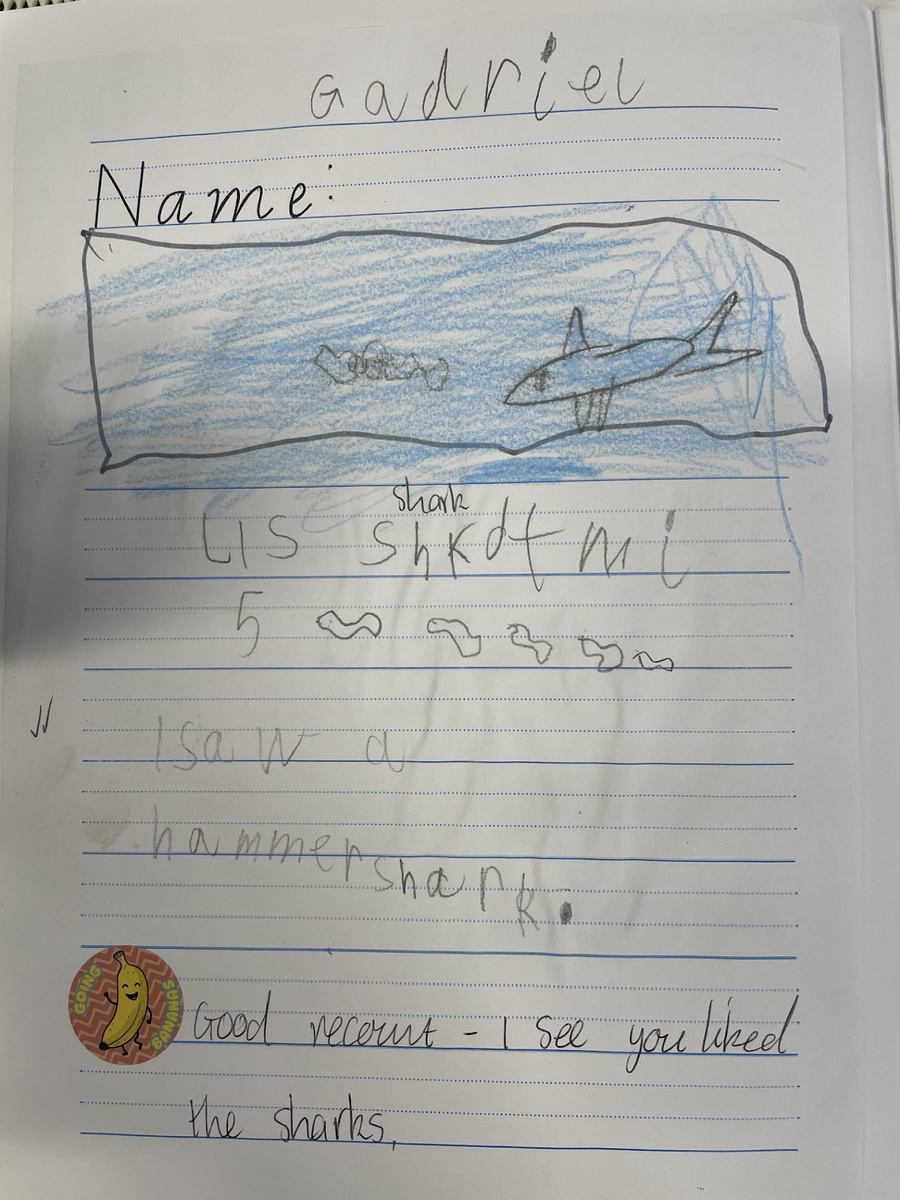 Gadriel
Name:
shark
LIS Shkdt mi
5
I saw a
hammer shark.
GOING BANANAS
Good recount - I see you liked
the sharks,